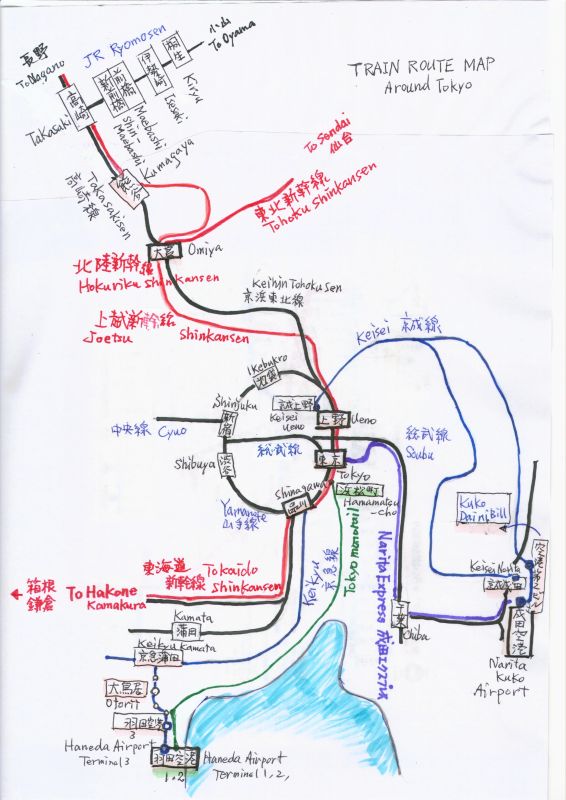 TRAIN ROUTE MAP
Around Tokyo
長野
To Nagano
JR Ryomosen
小山
To Oyama
高崎
Takasaki
新前橋
前橋
伊勢崎
桐生
Shin-
Maebashi
Maebashi
Isesaki
Kiryu
Kumagaya
Takasakisen
高崎線
To Sendai
仙台
東北新幹線
Tohoku Shinkansen
大宮
Omiya
北陸新幹線
Hokuriku Shinkansen
上越新幹線
Joetsu Shinkansen
Keihin Tohokusen
京浜東北線
Keisei 京成線
Ikebukro
池袋
Shinjuku
新宿
中央線 Cyuo
Keisei
Ueno
上野
Ueno
総武線
総武線
Soubu
渋谷
Shibuya
東京
Tokyo
浜松町
Hamamatsu
-cho
Shinagawa
品川
Yamanote
山手線
Kuko
Dai ni Bill
Keisei Narita
成田空港
Narita
Kuko
Airport
東海道
新幹線
Tokaido
Shinkansen
Keikyu 京急線
Tokyo monorail
Narita Express 成田エクスプレス
千葉
Chiba
← 箱根
鎌倉
To Hakone
Kamakura
Kamata
蒲田
Keikyu Kamata
京急蒲田
大鳥居
Otorii
羽田空港
3
Haneda Airport
Terminal 3
羽田空港
1,2
Haneda Airport
Terminal 1, 2,